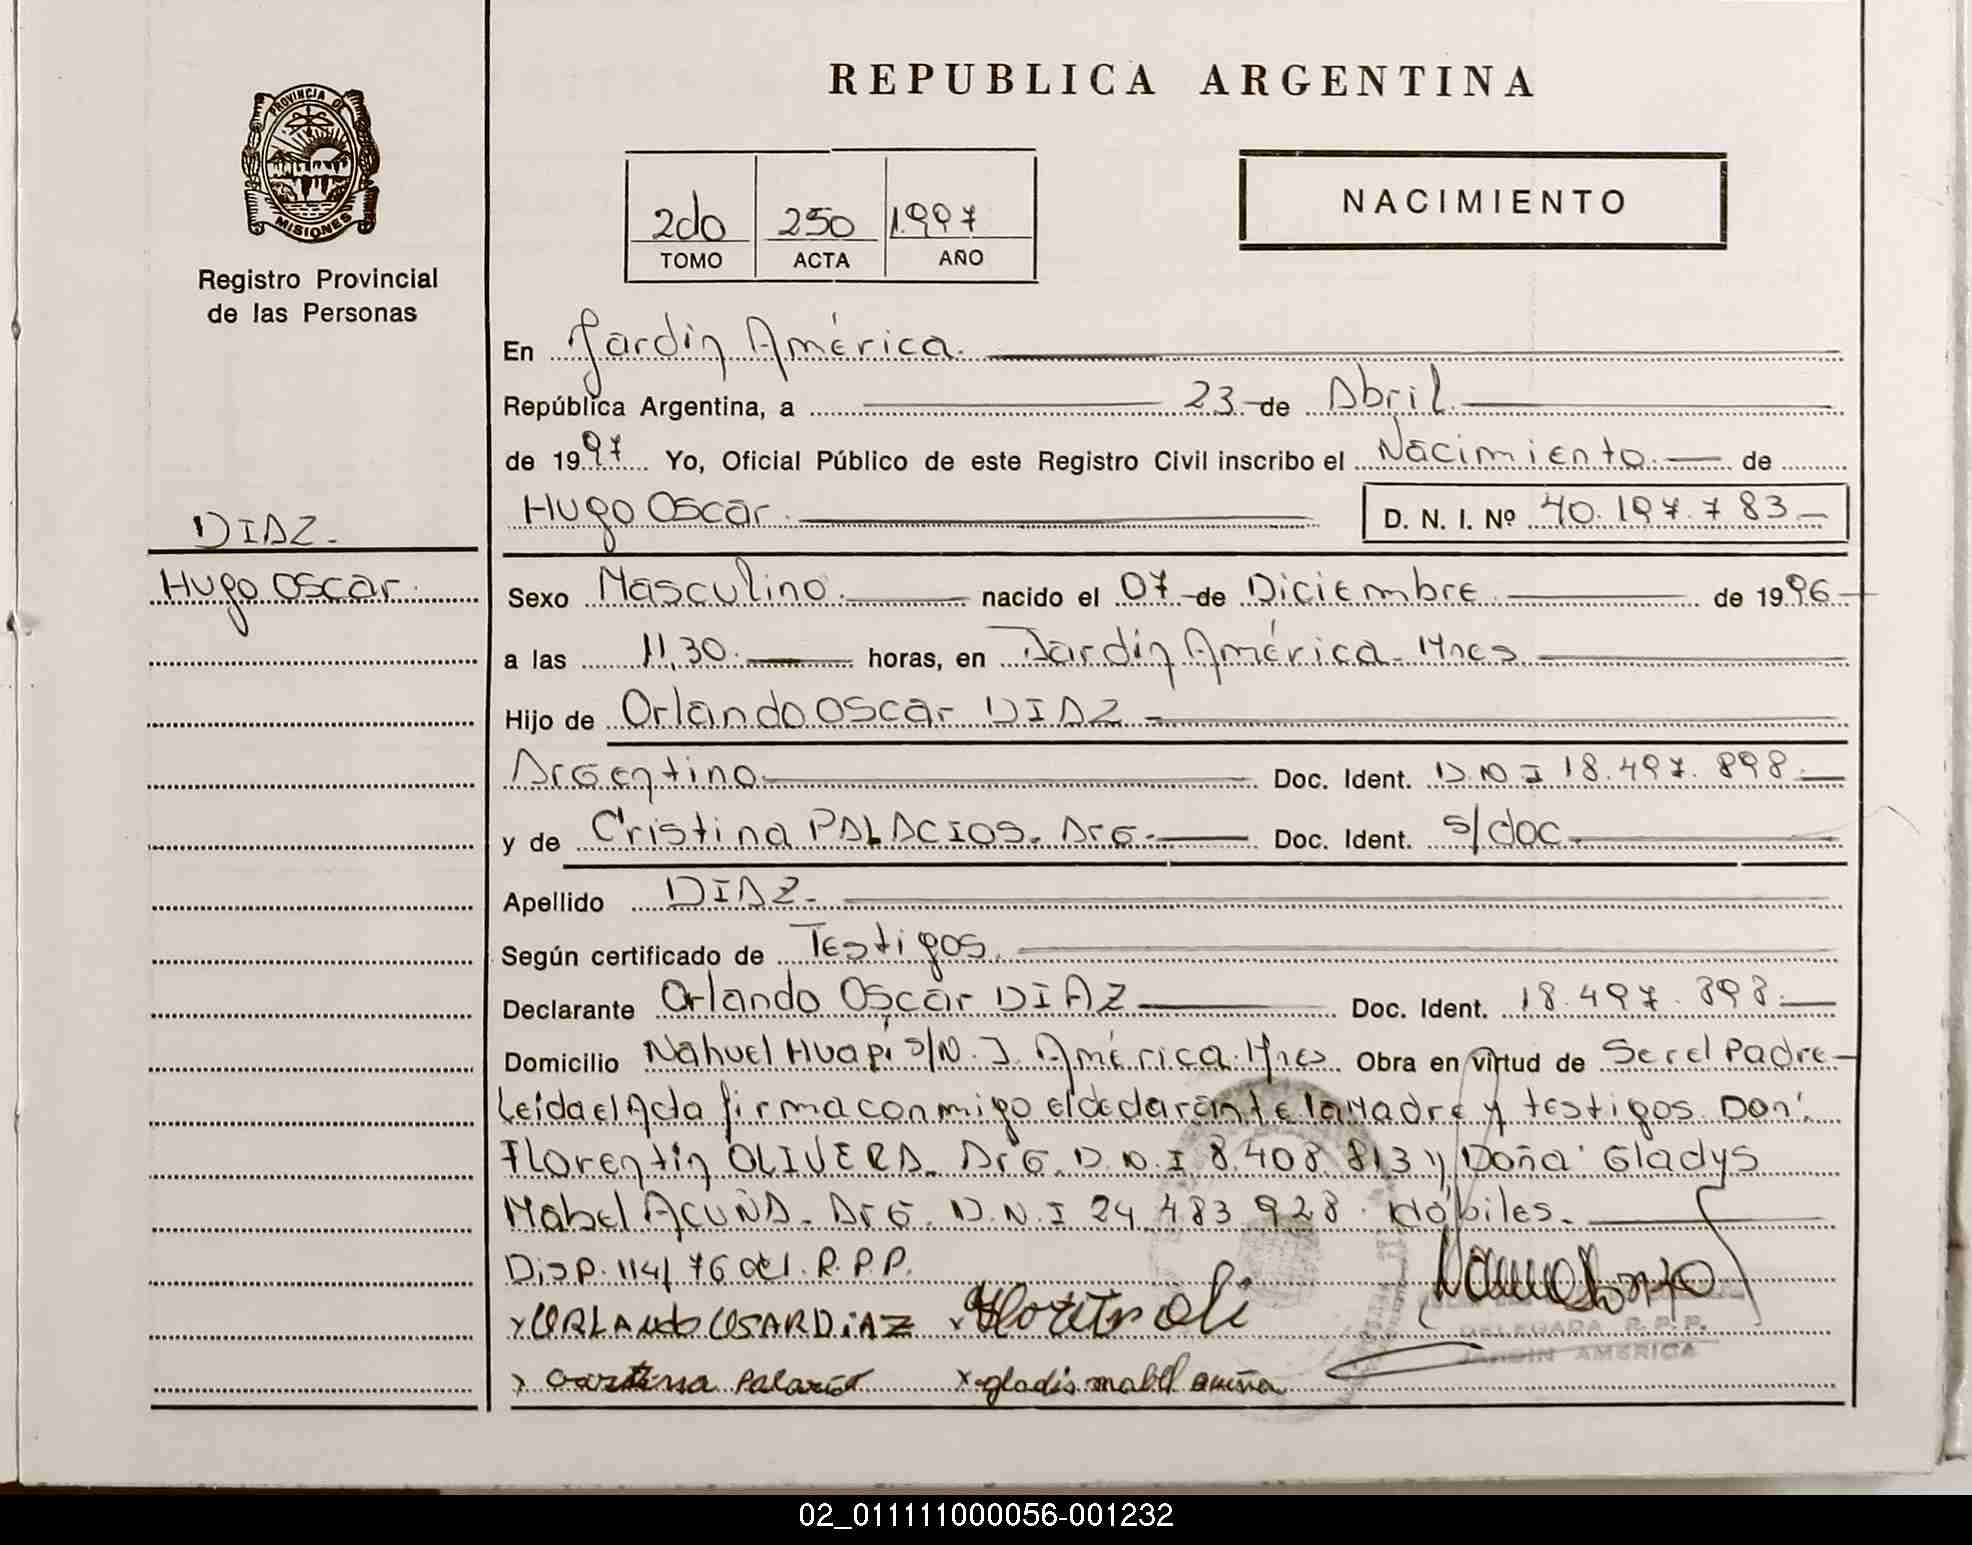 PROVINCIA DE
MISIONES
Registro Provincial
de las Personas
DIAZ.
Hugo Oscar.
REPUBLICA ARGENTINA
2do 250 1.997
TOMO ACTA AÑO
NACIMIENTO
En Jardín América.
República Argentina, a 23 de Abril
de 1997 Yo, Oficial Público de este Registro Civil inscribo el Nacimiento. de
Hugo Oscar. D. N. I. Nº 40.197.783
Sexo Masculino. nacido el 07 de Diciembre. de 1996
a las 11,30. horas, en Jardín América. Mnes
Hijo de Orlando Oscar DIAZ
Argentino Doc. Ident. D.N.I 18.497.898.
y de Cristina PALACIOS. Arg. Doc. Ident. s/doc
Apellido DIAZ.
Según certificado de Testigos.
Declarante Orlando Oscar DIAZ Doc. Ident. 18.497.898.
Domicilio Nahuel Huapi s/N. J. América. Mnes Obra en virtud de Ser el Padre
Leida el Acta firma conmigo el declarante la Madre y testigos Don.
Florentin OLIVERA. Arg. D.N.I 8.408.813 y Doña Gladys
Mabel ACUÑA. Arg. D.N.I 24.483.928. Hábiles.
Disp. 114/76 del. R.P.P.
x ORLANDO OSAR DiAZ x
x x gladis mabel acuña
DELEGADA R.P.P.
JARDIN AMERICA
02_011111000056-001232